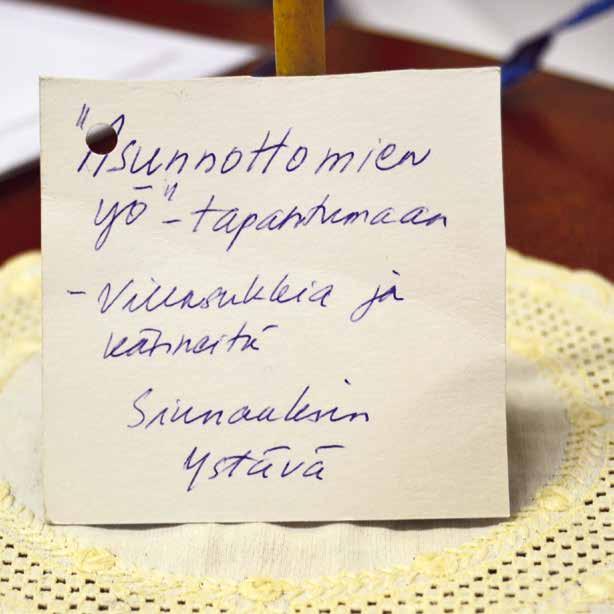 "Asunnottomien
yö"-tapahtumaan
- Villasukkia ja
käsineitä
Siunauksin
Ystävä